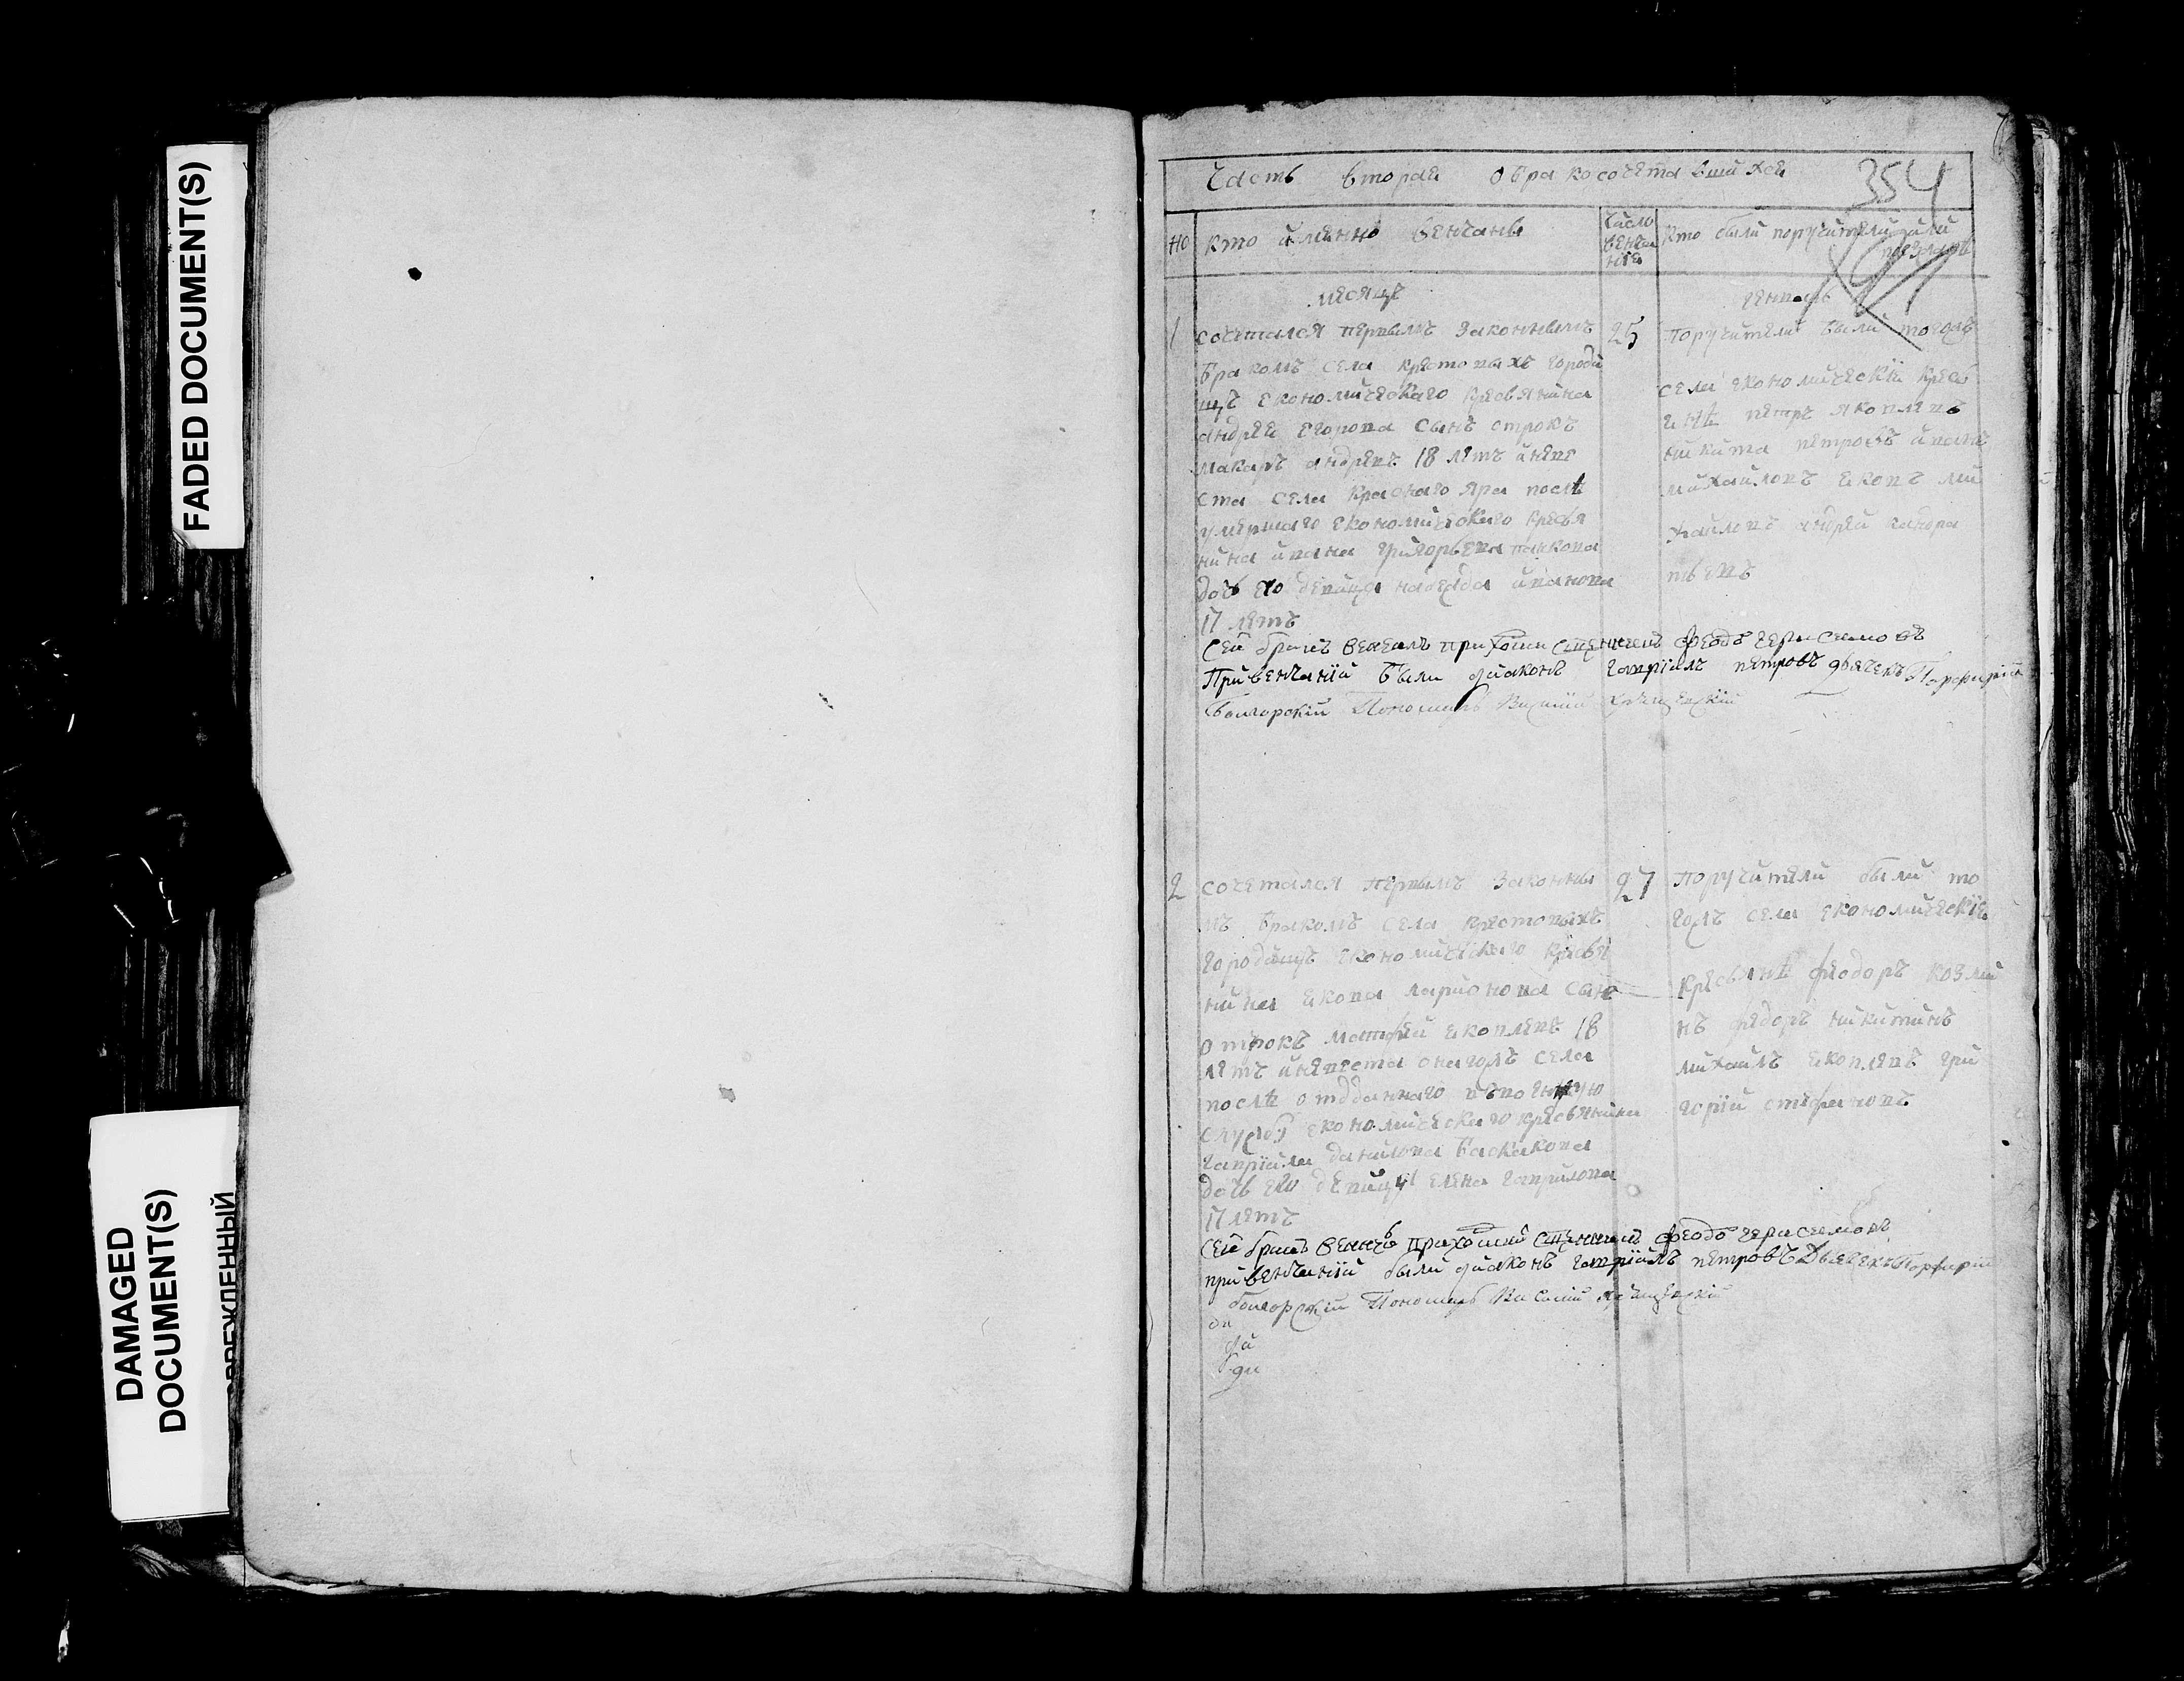 FADED DOCUMENT(S)
DAMAGED
DOCUMENT(S)
354
Часть вторая о бракосочетавшихся
но
кто имянно венчаны
число
венча
нїя
кто были поручители или
поезжанъ
месяцъ
генварь
1
сочетался первымъ законнымъ
бракомъ села крестовыхъ городи
щъ економическаго кресьянина
андрея егорова сынъ отрокъ
макаръ андревъ 18 летъ и неве
ста села краснаго яра послѣ
умершаго економическаго кресья
нина ивана григорьева
дочь его девица надежда иванова
17 летъ
25
поручители были тогожъ
села економическїи кресь
янѣ петръ яковлевъ
никита петровъ иванъ
михайловъ яковъ ми
хайловъ андрей
Сей бракъ венчалъ приходши сщенникъ феодъ герасимовъ
При венчанїи были дїаконъ гаврїилъ петровъ дьячекъ Порфирїи
болгорскїи Пономарь Василїи
2
сочетался первымъ законны
мъ бракомъ села крестовыхъ
городищъ економическаго кресья
нина якова ларионова сынъ
отрокъ матфей яковлевъ 18
летъ и невеста онагожъ села
послѣ отдданнаго въ военную
службу економическаго кресьянина
гаврїила данилова баскакова
дочь его девица елена гаврилова
17 летъ
27
поручители были то
гожъ села економическїе
кресьянѣ феодоръ козми
нъ федоръ никитинъ
михайлъ яковлевъ гри
горїй стефановъ
Сей бракъ венчалъ приходшїй сщенникъ феодо герасимовъ
при венчанїи были дїаконъ гаврїилъ петровъ Дьячекъ Порфирїи
болгорскїи Пономарь Василїи